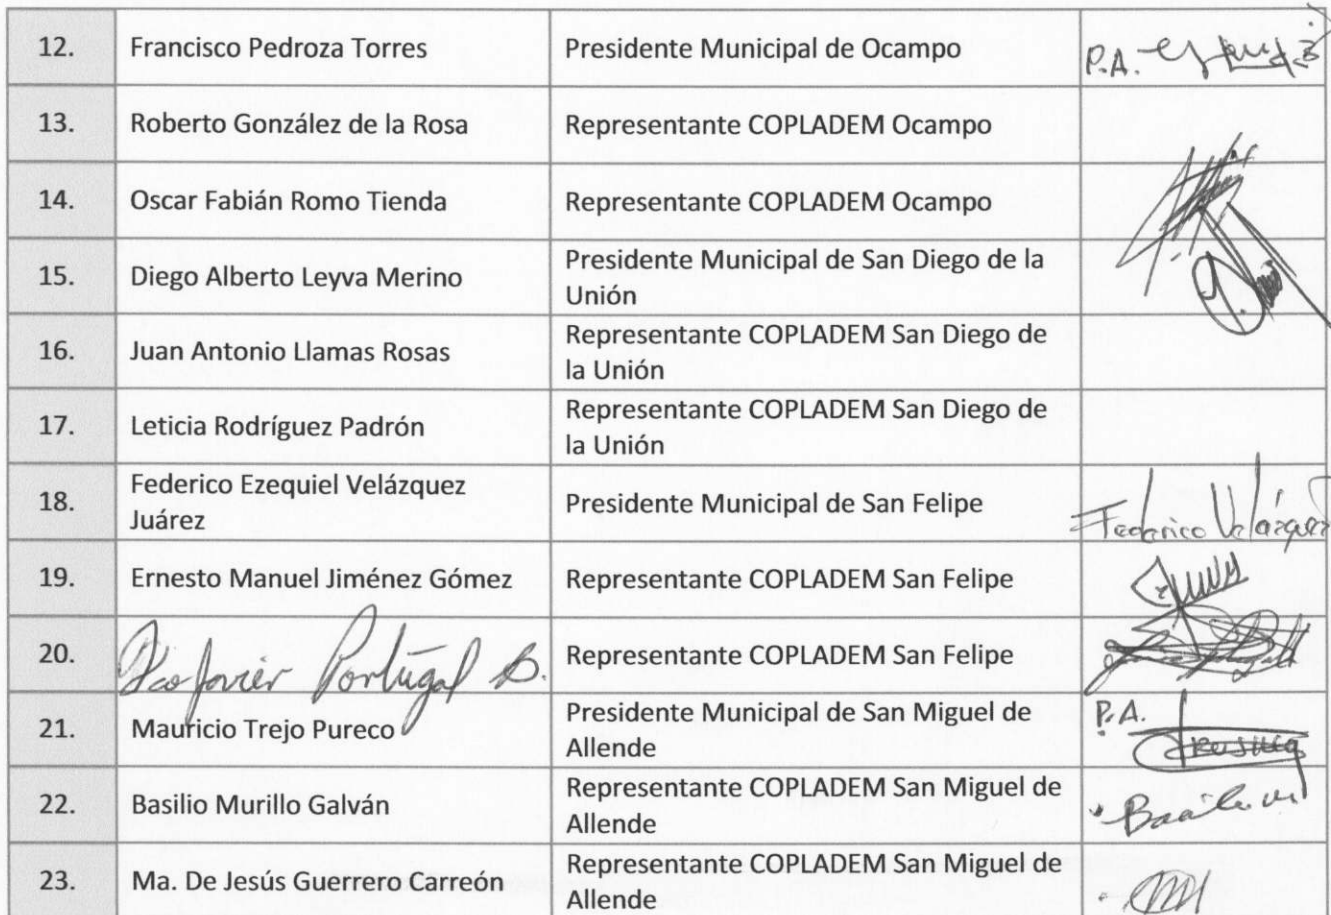 12. Francisco Pedroza Torres Presidente Municipal de Ocampo P.A.
13. Roberto González de la Rosa Representante COPLADEM Ocampo
14. Oscar Fabián Romo Tienda Representante COPLADEM Ocampo
15. Diego Alberto Leyva Merino Presidente Municipal de San Diego de la
Unión
16. Juan Antonio Llamas Rosas Representante COPLADEM San Diego de
la Unión
17. Leticia Rodríguez Padrón Representante COPLADEM San Diego de
la Unión
18. Federico Ezequiel Velázquez
Juárez
Presidente Municipal de San Felipe Federico Velázquez
19. Ernesto Manuel Jiménez Gómez Representante COPLADEM San Felipe
20. Fco Javier Portugal B. Representante COPLADEM San Felipe
21. Mauricio Trejo Pureco Presidente Municipal de San Miguel de
Allende
P.A.
22. Basilio Murillo Galván Representante COPLADEM San Miguel de
Allende
Basilio M
23. Ma. De Jesús Guerrero Carreón Representante COPLADEM San Miguel de
Allende